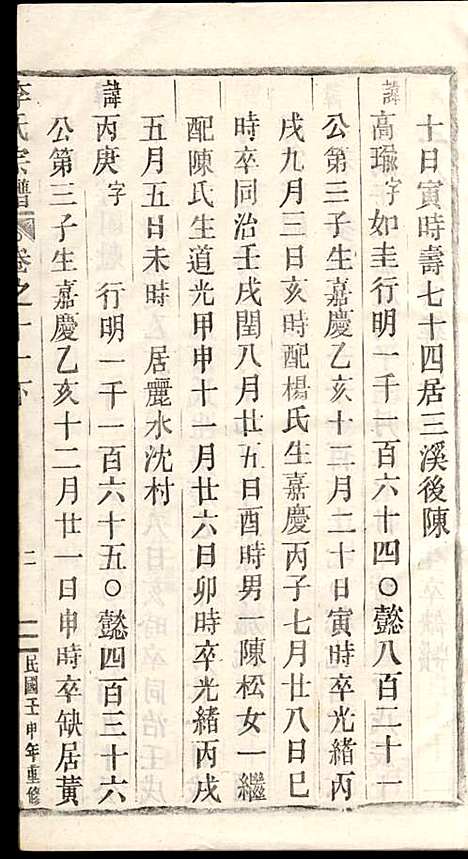 十日寅時壽七十四居三溪後陳
諱高瑜字如圭行明一千一百六十四〇懿八百二十一
公第三子生嘉慶乙亥十二月二十日寅時卒光緒丙
戌九月三日亥時配楊氏生嘉慶丙子七月廿八日巳
時卒同治壬戌閏八月廿五日酉時男 陳松女一繼
配陳氏生道光甲申十一月廿六日卯時卒光緒丙戌
五月五日未時 居麗水沈村
諱丙庚字 行明一千一百六十五〇懿四百三十六
公第三子生嘉慶乙亥十二月廿一日申時卒缺居黃
李氏宗譜 卷之十一下 二 民國壬申年重修